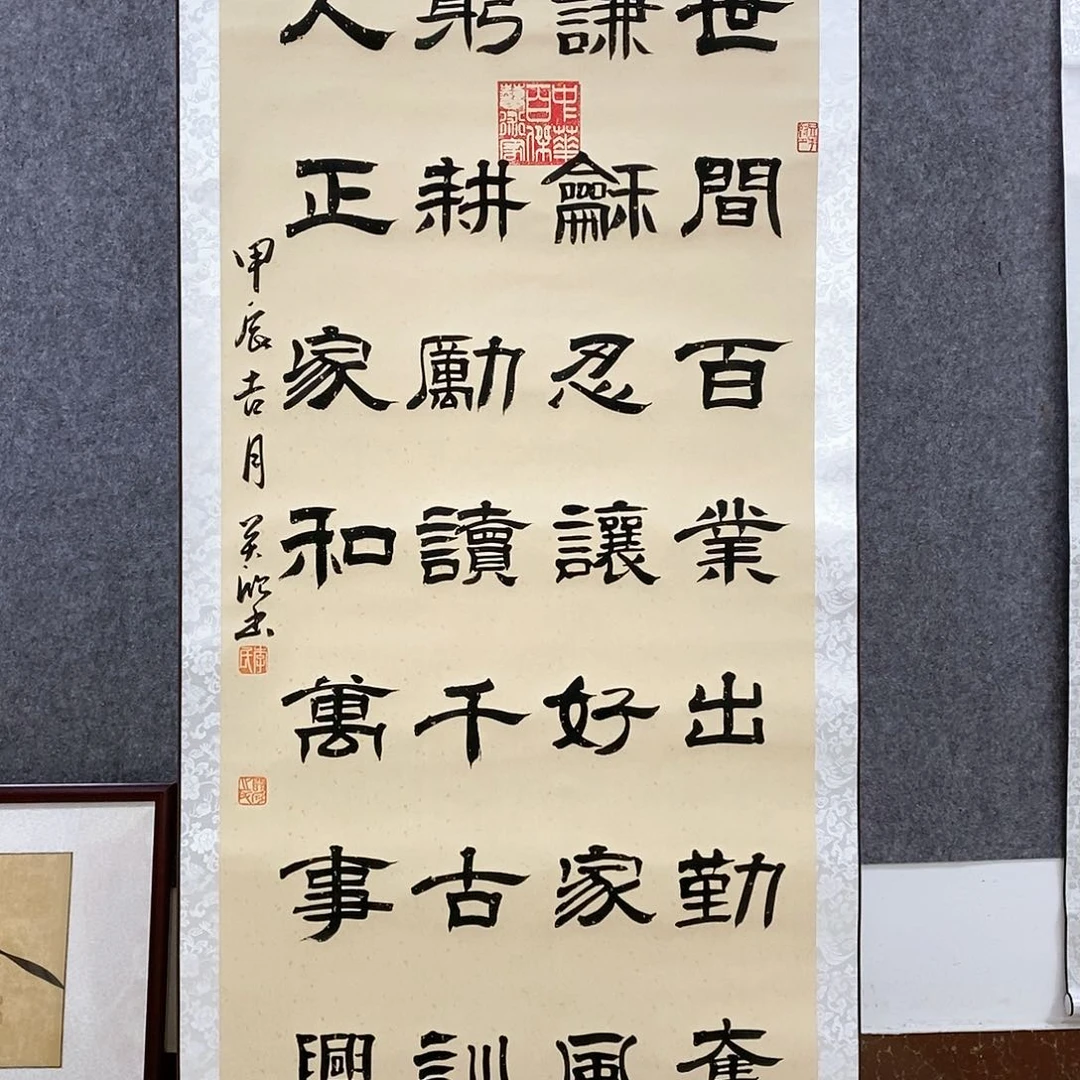 世間百業出勤奮
謙龢忍讓好家風
躬耕勵讀千古訓
人正家和萬事興
甲辰吉月
中華百傑藝術家